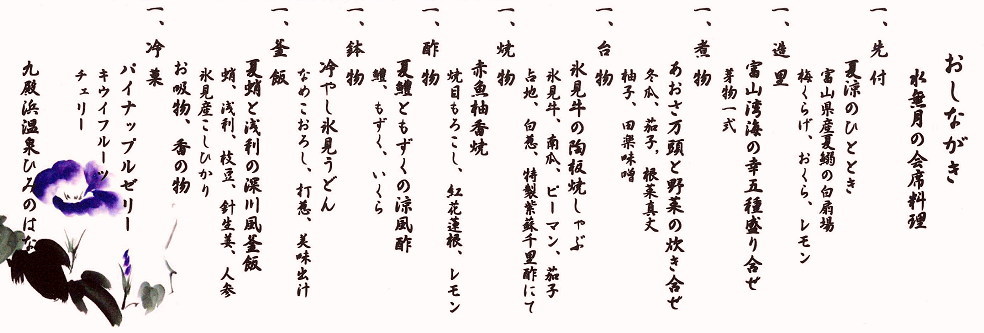 おしながき
水無月の会席料理
一、先付
夏涼のひととき
富山県産夏鰯の白扇場
梅くらげ、おくら、レモン
一、造里
富山湾海の幸五種盛り合せ
芽物一式
一、煮物
あおさ万頭と野菜の炊き合せ
冬瓜、茄子、根菜真丈
柚子、田楽味噌
一、台物
氷見牛の陶板焼しゃぶ
氷見牛、南瓜、ピーマン、茄子
占地、白葱、特製紫蘇千里酢にて
一、焼物
赤魚柚香焼
焼目もろこし、紅花蓮根、レモン
一、酢物
夏鱧ともずくの涼風酢
鱧、もずく、いくら
一、鉢物
冷やし氷見うどん
なめこおろし、打葱、美味出汁
一、釜飯
夏蛸と浅利の深川風釜飯
蛸、浅利、枝豆、針生姜、人参
氷見産こしひかり
お吸物、香の物
一、冷菓
パイナップルゼリー
キウイフルーツ
チェリー
九殿浜温泉ひみのはな